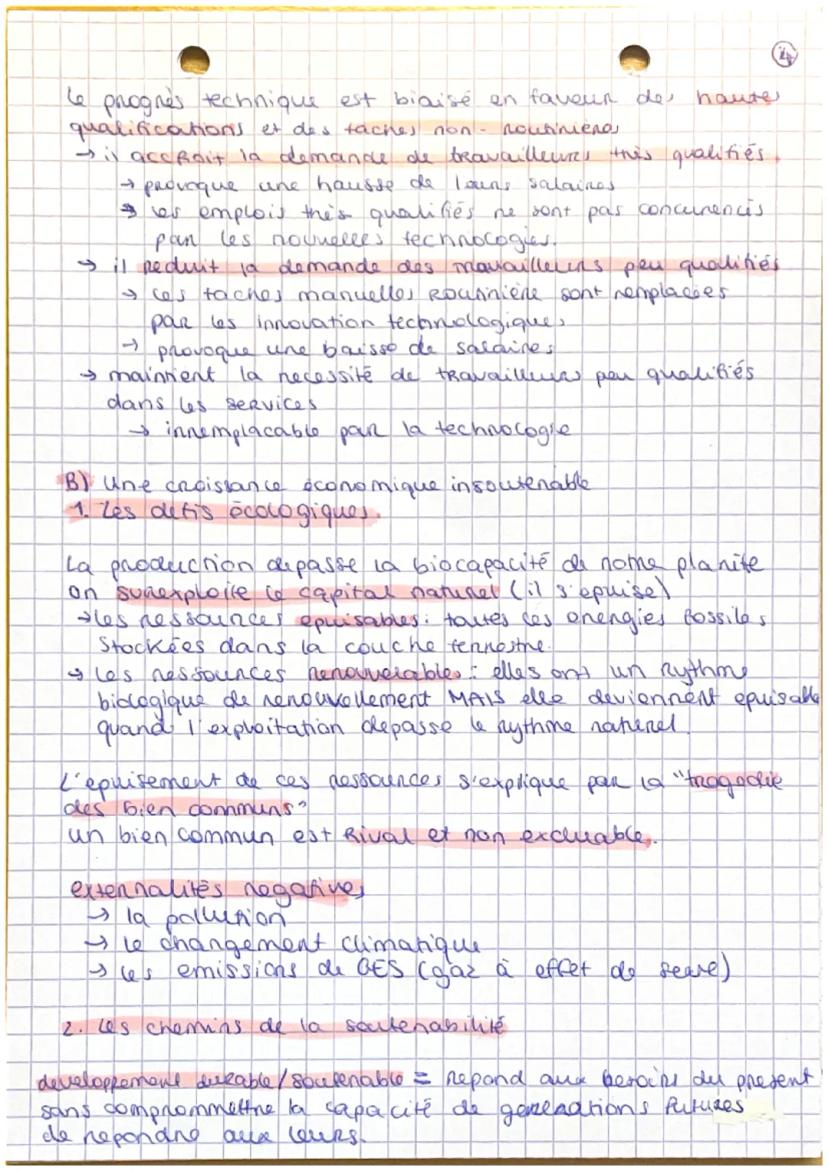 4
Le progrès technique est biaisé en faveur des hautes
qualifications et des taches non-routinières
→ il accroit la demande de travailleurs très qualifiés.
→ provoque une hausse de leurs salaires
→ les emplois très qualifiés ne sont pas concurencés
par les nouvelles technologies.
→ il reduit la demande des travailleurs peu qualifiés
→ les taches manuelles routinière sont remplacées
par les innovation technologiques
→ provoque une baisse de salaires
→ maintient la necessité de travailleurs peu qualifiés
dans les services
→ irremplacable par la technologie
B) Une croissance économique insoutenable
1. Les défis écologiques.
La production depasse la biocapacité de notre planète
on surexploite le capital naturel (il s'epuise)
→ les ressources epuisables : toutes les energies fossiles
stockées dans la couche terrestre.
→ les ressources renouvelables : elles ont un rythme
biologique de renouvellement MAIS elle deviennent epuisable
quand l'exploitation depasse le rythme naturel.
L'epuisement de ces ressources s'explique par la "tragedie
des bien communs"
un bien commun est rival et non excluable.
externalités negatives
→ la pollution
→ le changement climatique
→ les emissions de GES (gaz à effet de serre)
2. Les chemins de la soutenabilité
developpement durable/soutenable = repond aux besoins du present
sans compromettre la capacité de generations futures
de repondre aux leurs.